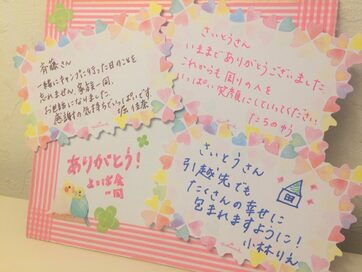 斉藤さん
一緒にキャンプに行った日のことを
忘れません。家族一同、
お世話になりました。
感謝の気持ちでいっぱいです。
さいとうさん
いままでありがとうございました
これからも周りの人を
いっぱい笑顔にしていてください
ありがとう!
一同
さいとうさん
引越先でも
たくさんの幸せに
包まれますように!
小林りえ